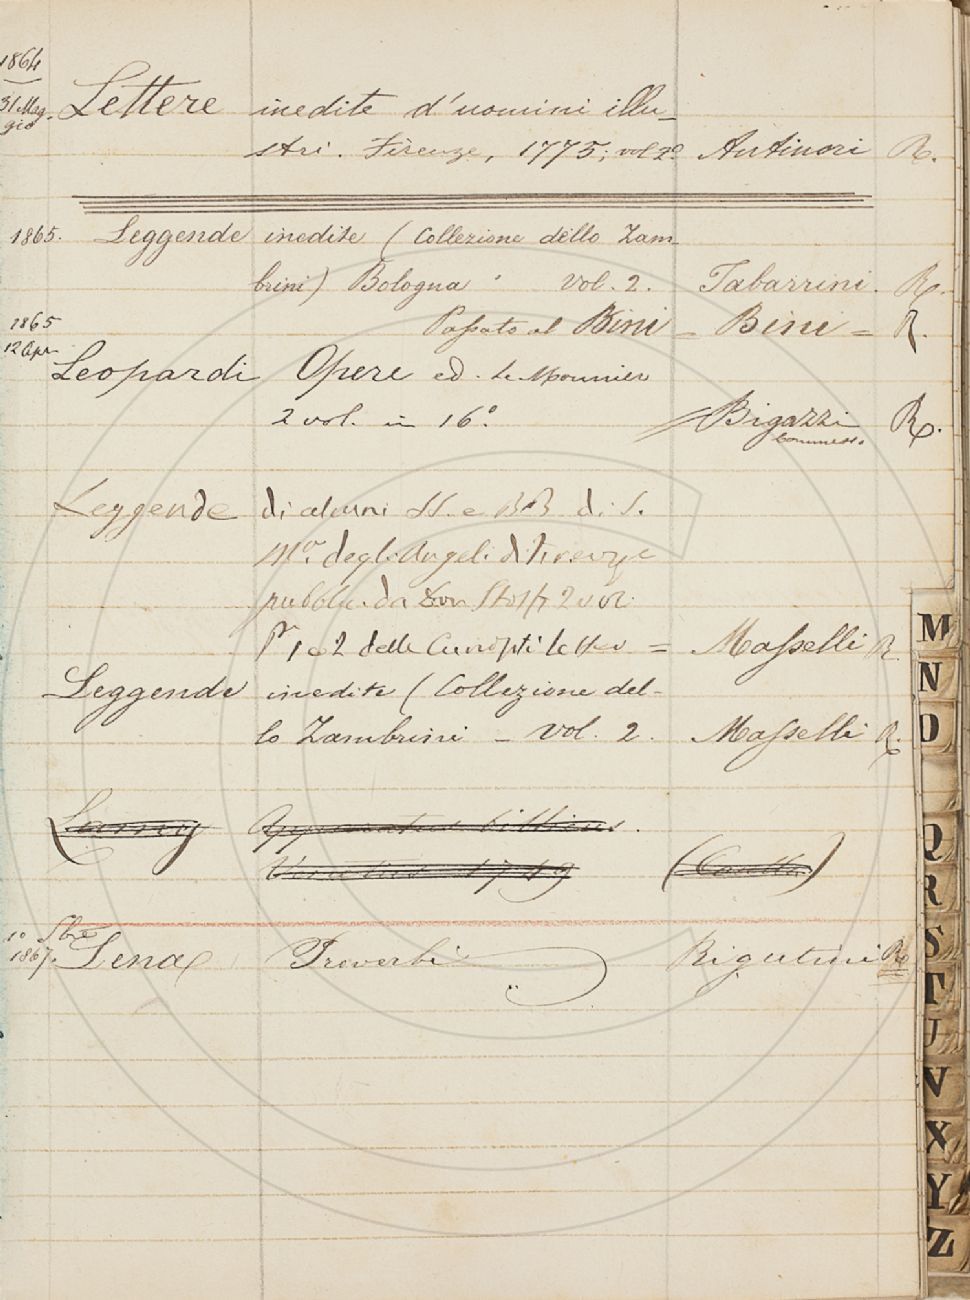 1864
31 Mag-
gio. Lettere inedite d'uomini illu-
stri. Firenze, 1775; vol 2º Antinori R.
1865. Leggende inedite (Collezione dello Zam-
brini) Bologna vol. 2. Tabarrini. R.
1865 Passato al Bini = Bini = R.
12 Apr. Leopardi Opere ed. Le Monnier
2 vol. in 16.º Bigazzi R.
Leggende di alcuni SS. e BB. di S.
Mª. degli Angeli di Firenze
pubbl. da Don 2 vol.
1 e 2 delle = Masselli R.
Leggende inedite (Collezione del-
lo Zambrini - vol. 2. Masselli R.
Lamy Apparatus biblicus.
1719
1º 8bre
1867. Lena Proverbi Rigutini R
M
N
O
Q
R
S
T
U
V
X
Y
Z